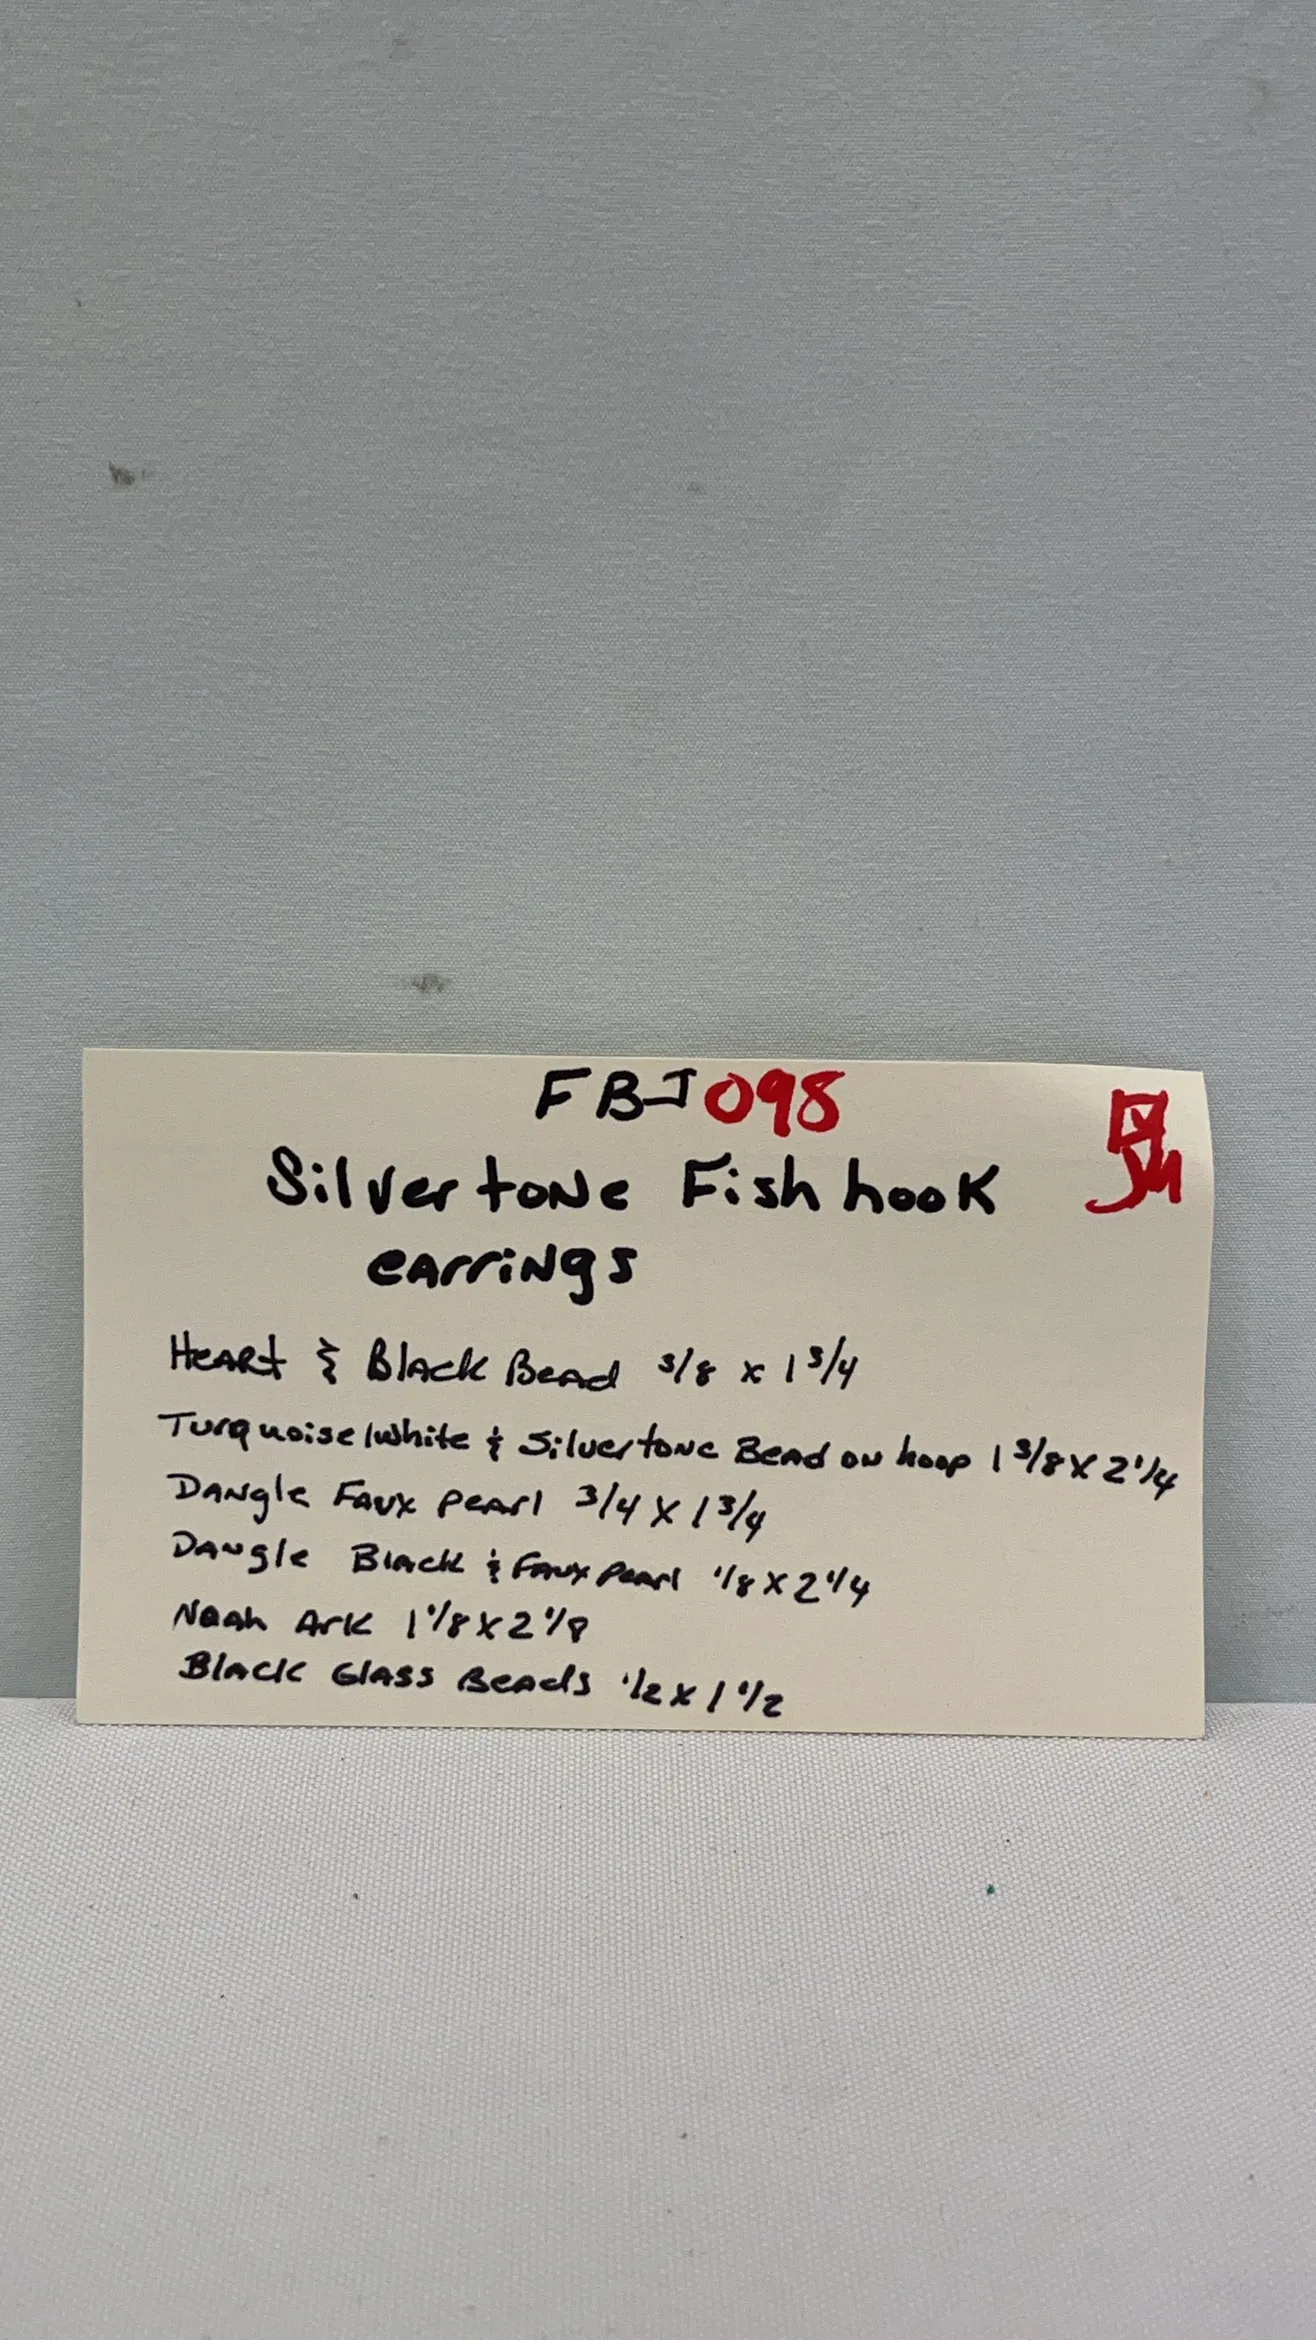 FBJ098
Silvertone Fishhook
earrings
Heart & Black Bead 3/8 x 1 3/4
Turquoise/White & Silvertone Bead on hoop 1 3/8 x 2 1/4
Dangle Faux pearl 3/4 x 1 3/4
Dangle Black & Faux pearl 1/8 x 2 1/4
Noah Ark 1 1/8 x 2 1/8
Black Glass Beads 1/2 x 1 1/2